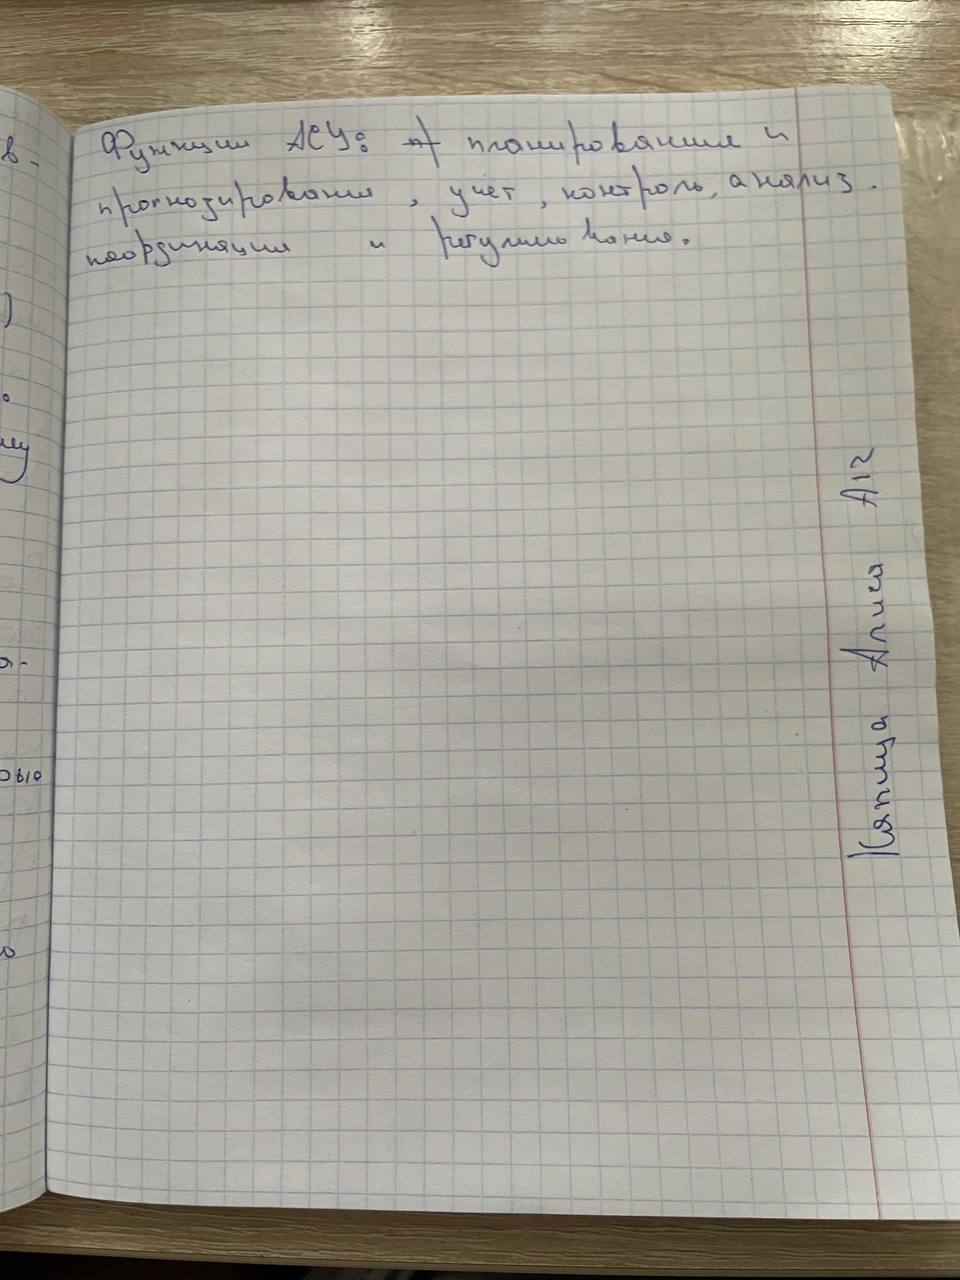 в-
Функции АСУ: планирования и
прогнозирования, учёт, контроль, анализ.
координация и регулирования.
)
му
я-
овыа
ю
Капица Алиса А12